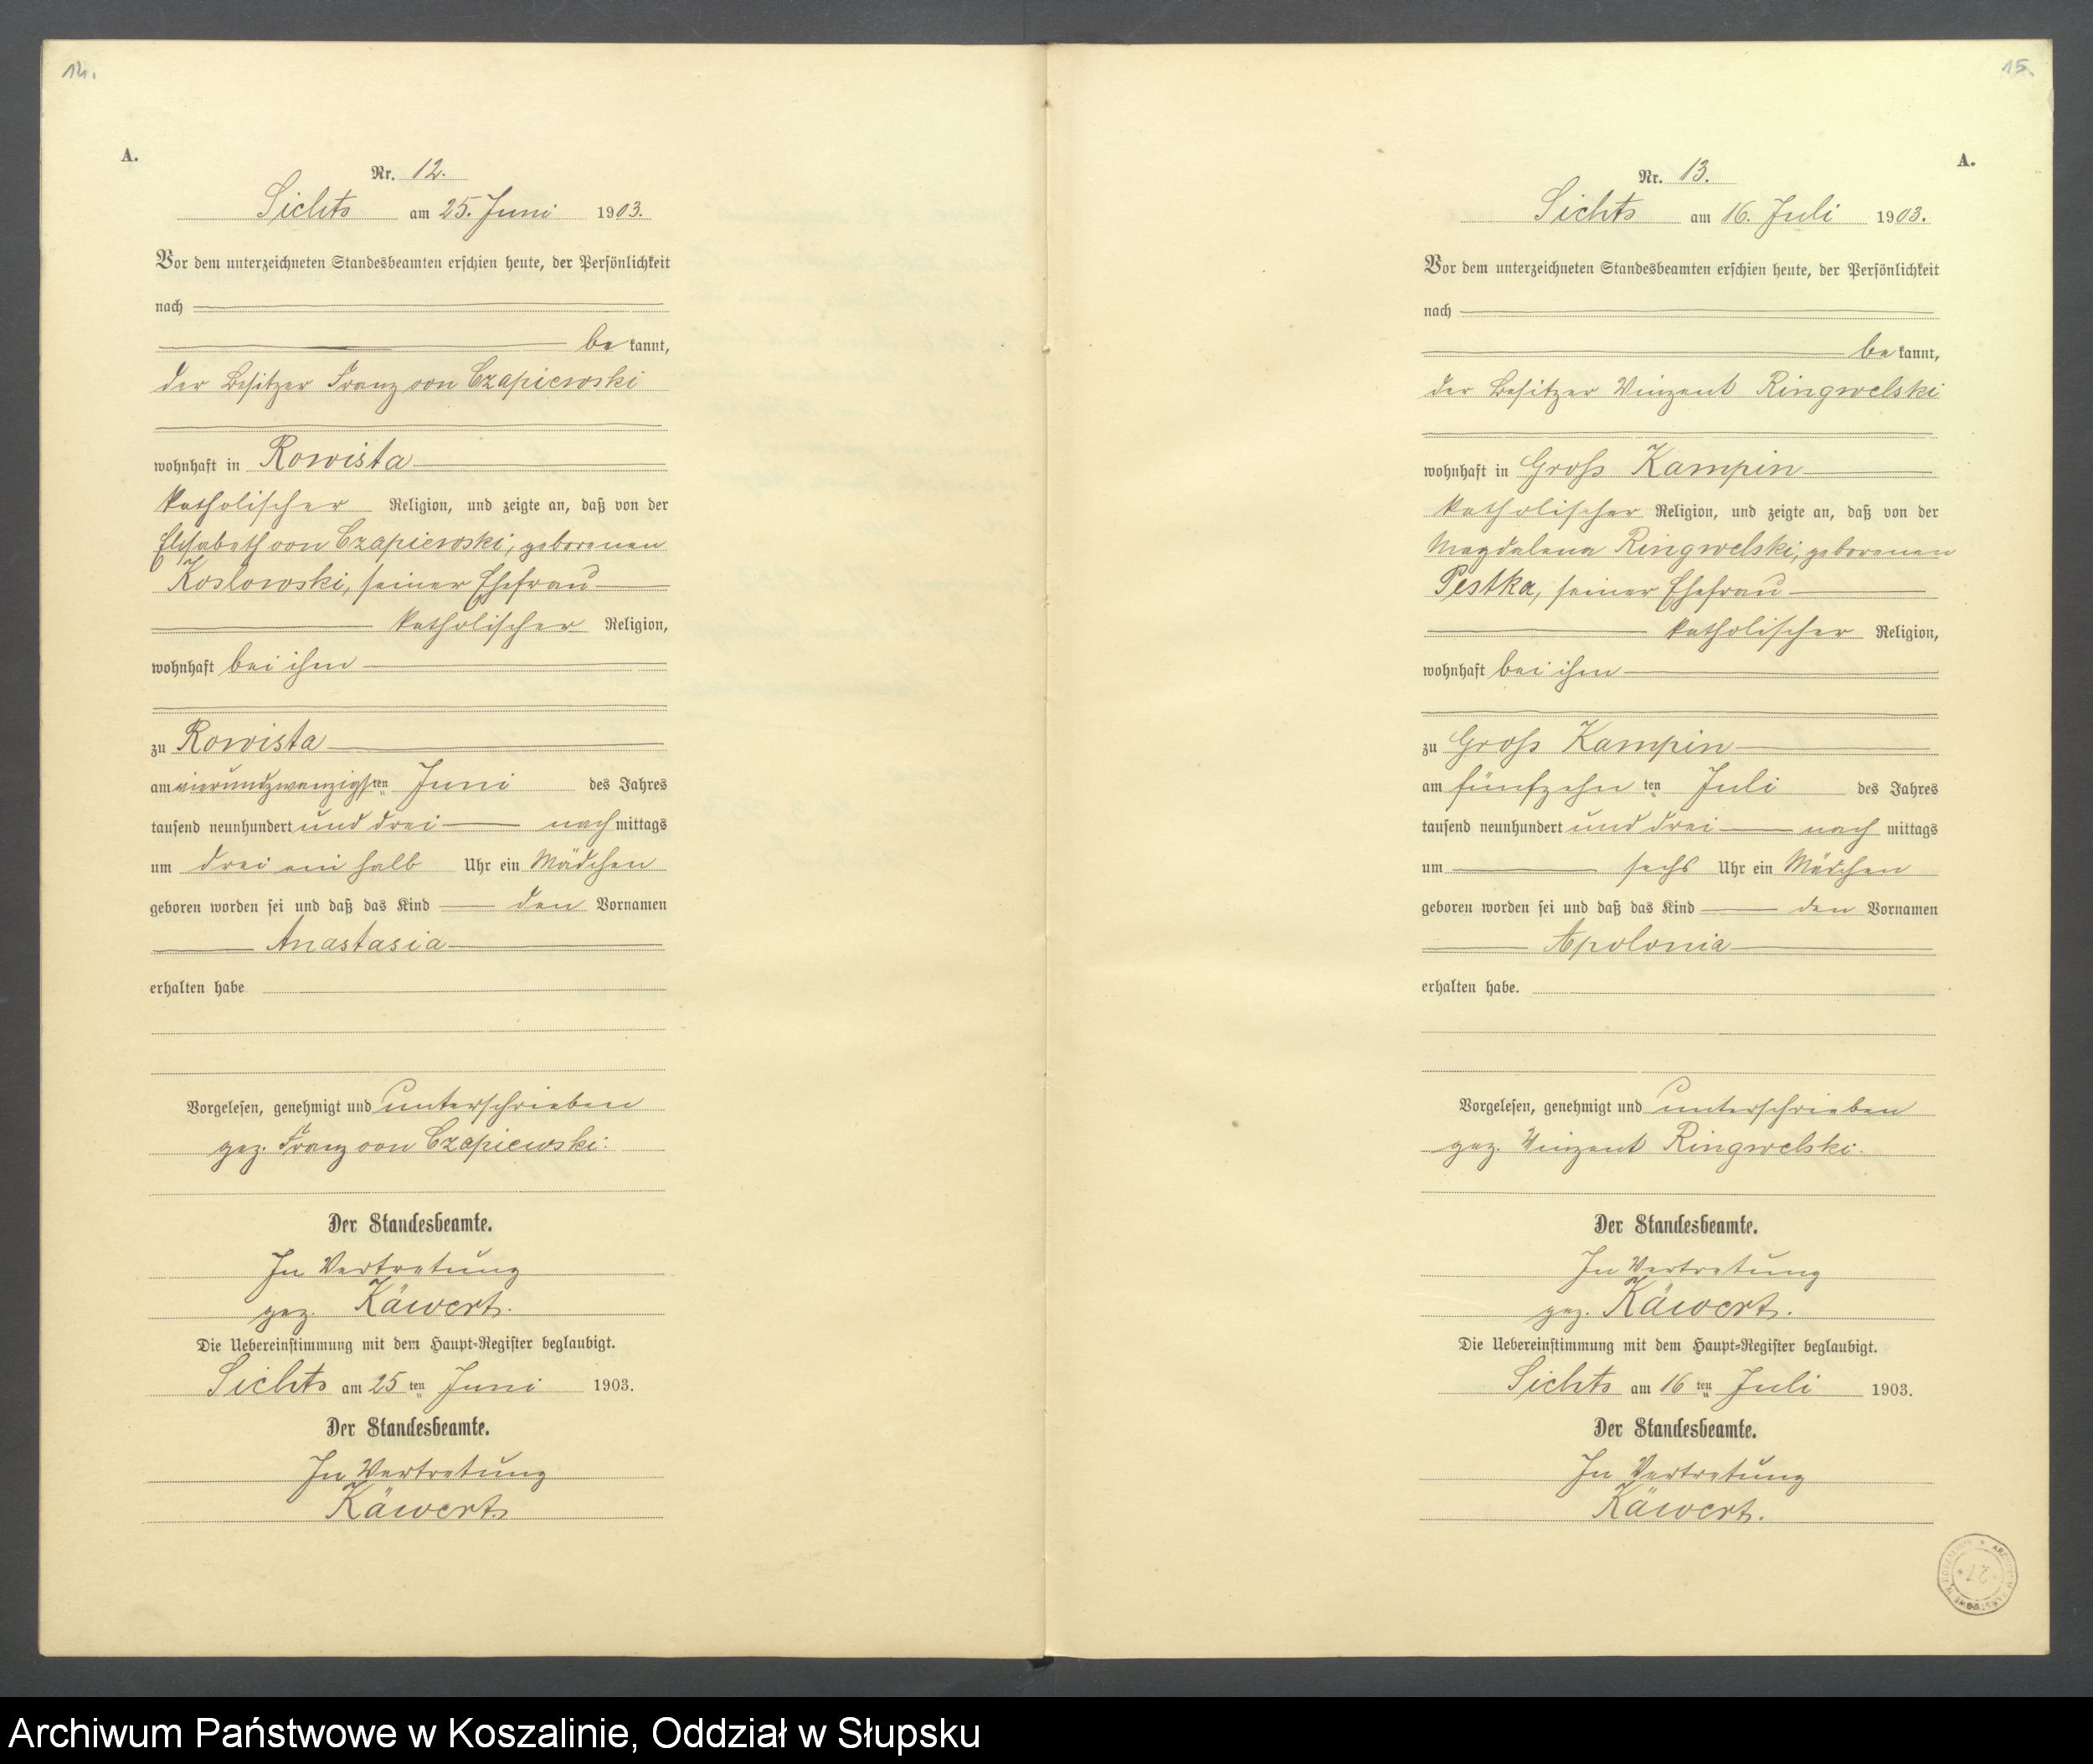 14.
A.
Nr. 12.
Sichts am 25. Juni 1903.
Vor dem unterzeichneten Standesbeamten erschien heute, der Persönlichkeit
nach
be kannt,
der Besitzer Franz von Czapiewski
wohnhaft in Rowista
katholischer Religion, und zeigte an, daß von der
Elisabeth von Czapiewski, geborenen
Koslowski, seiner Ehefrau
katholischer Religion,
wohnhaft bei ihm
zu Rowista
am vierundzwanzigsten Juni des Jahres
tausend neunhundert und drei nach mittags
um drei ein halb Uhr ein Mädchen
geboren worden sei und daß das Kind den Vornamen
Anastasia
erhalten habe
Vorgelesen, genehmigt und unterschrieben
gez. Franz von Czapiewski.
Der Standesbeamte.
In Vertretung
gez. Käwert.
Die Uebereinstimmung mit dem Haupt-Register beglaubigt.
Sichts am 25 ten Juni 1903.
Der Standesbeamte.
In Vertretung
Käwert.
15.
A.
Nr. 13.
Sichts am 16. Juli 1903.
Vor dem unterzeichneten Standesbeamten erschien heute, der Persönlichkeit
nach
be kannt,
der Besitzer Vinzent Ringwelski
wohnhaft in Groß Kampin
katholischer Religion, und zeigte an, daß von der
Magdalena Ringwelski, geborenen
Pestka, seiner Ehefrau
katholischer Religion,
wohnhaft bei ihm
zu Groß Kampin
am fünfzehn ten Juli des Jahres
tausend neunhundert und drei nach mittags
um sechs Uhr ein Mädchen
geboren worden sei und daß das Kind den Vornamen
Apolonia
erhalten habe.
Vorgelesen, genehmigt und unterschrieben
gez. Vinzent Ringwelski.
Der Standesbeamte.
In Vertretung
gez. Käwert.
Die Uebereinstimmung mit dem Haupt-Register beglaubigt.
Sichts am 16 ten Juli 1903.
Der Standesbeamte.
In Vertretung
Käwert.
27
Archiwum Państwowe w Koszalinie, Oddział w Słupsku